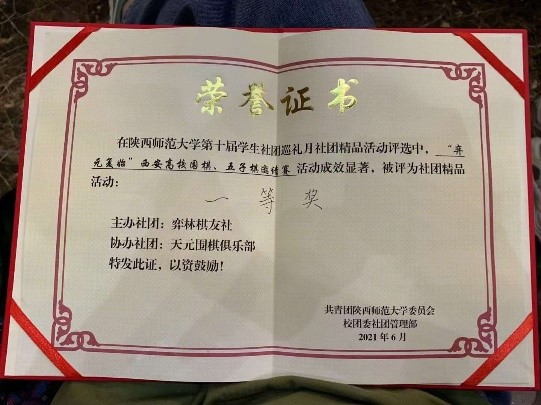 荣誉证书
在陕西师范大学第十届学生社团巡礼月社团精品活动评选中，“弈
元复始”西安高校围棋、五子棋邀请赛 活动成效显著，被评为社团精品
活动：
一等奖
主办社团：弈林棋友社
协办社团：天元围棋俱乐部
特发此证，以资鼓励！
共青团陕西师范大学委员会
校团委社团管理部
2021年6月